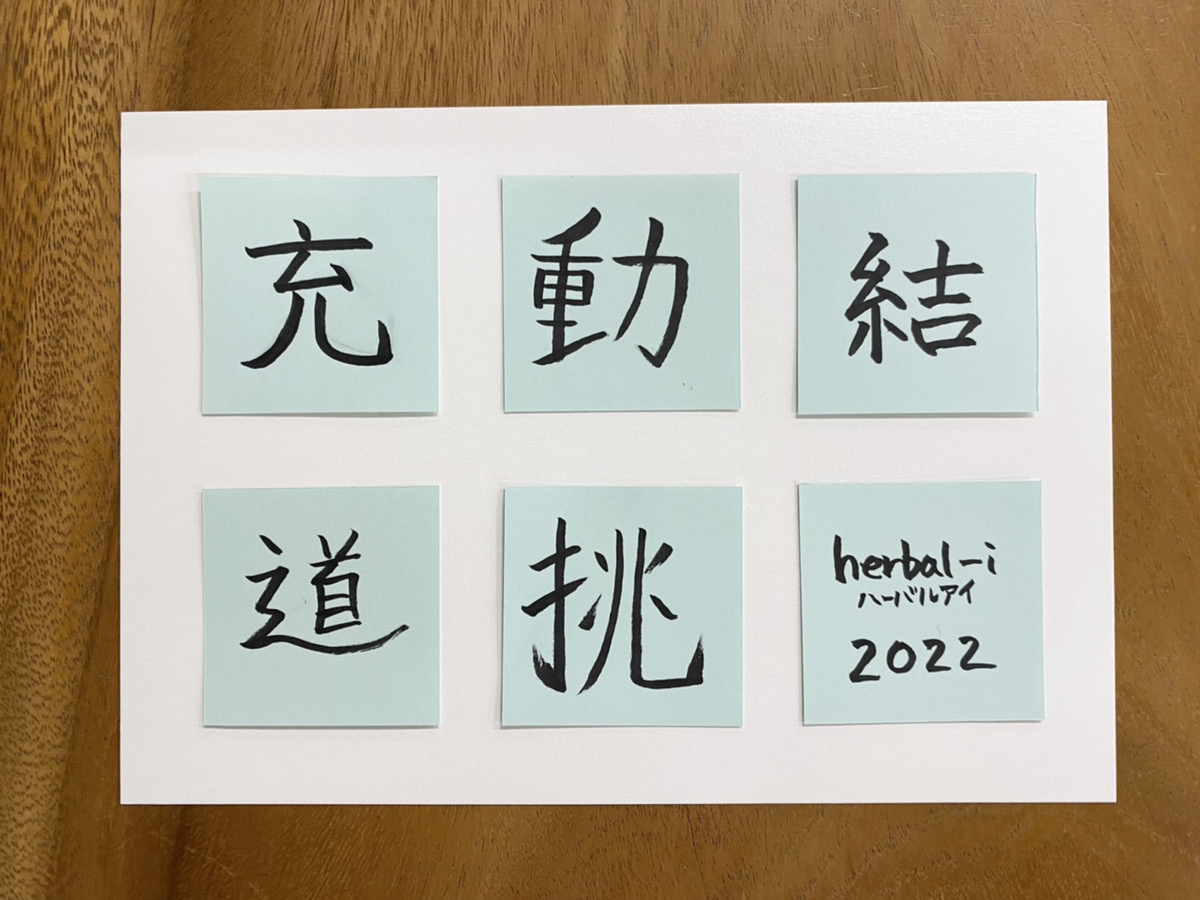 充
動
結
道
挑
herbal-i
ハーバルアイ
2022